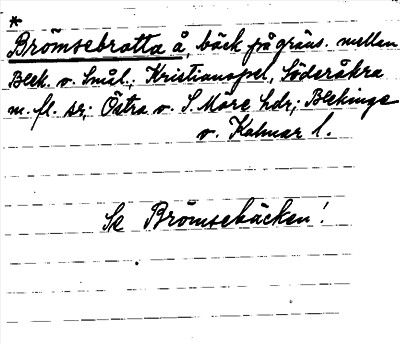 *
Brömsebrotta å, bäck på gräns. mellan
Blek. o. Smål.; Kristianopel, Söderåkra
m. fl. sr; Östra o. S. Möre hdr; Blekinge
o. Kalmar l.
Se Brömsebäcken!